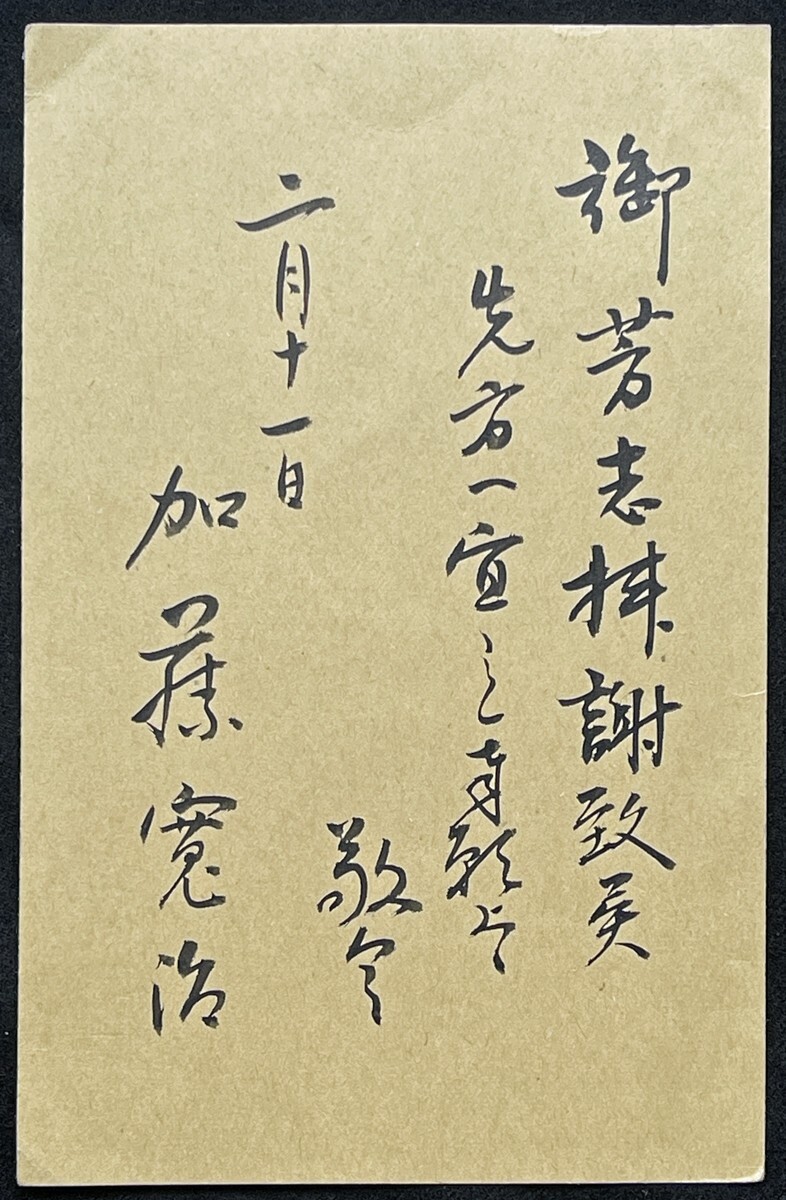 御芳志拝謝致候
先方へ宜しく奉願上候
敬具
二月十一日
加藤寛治